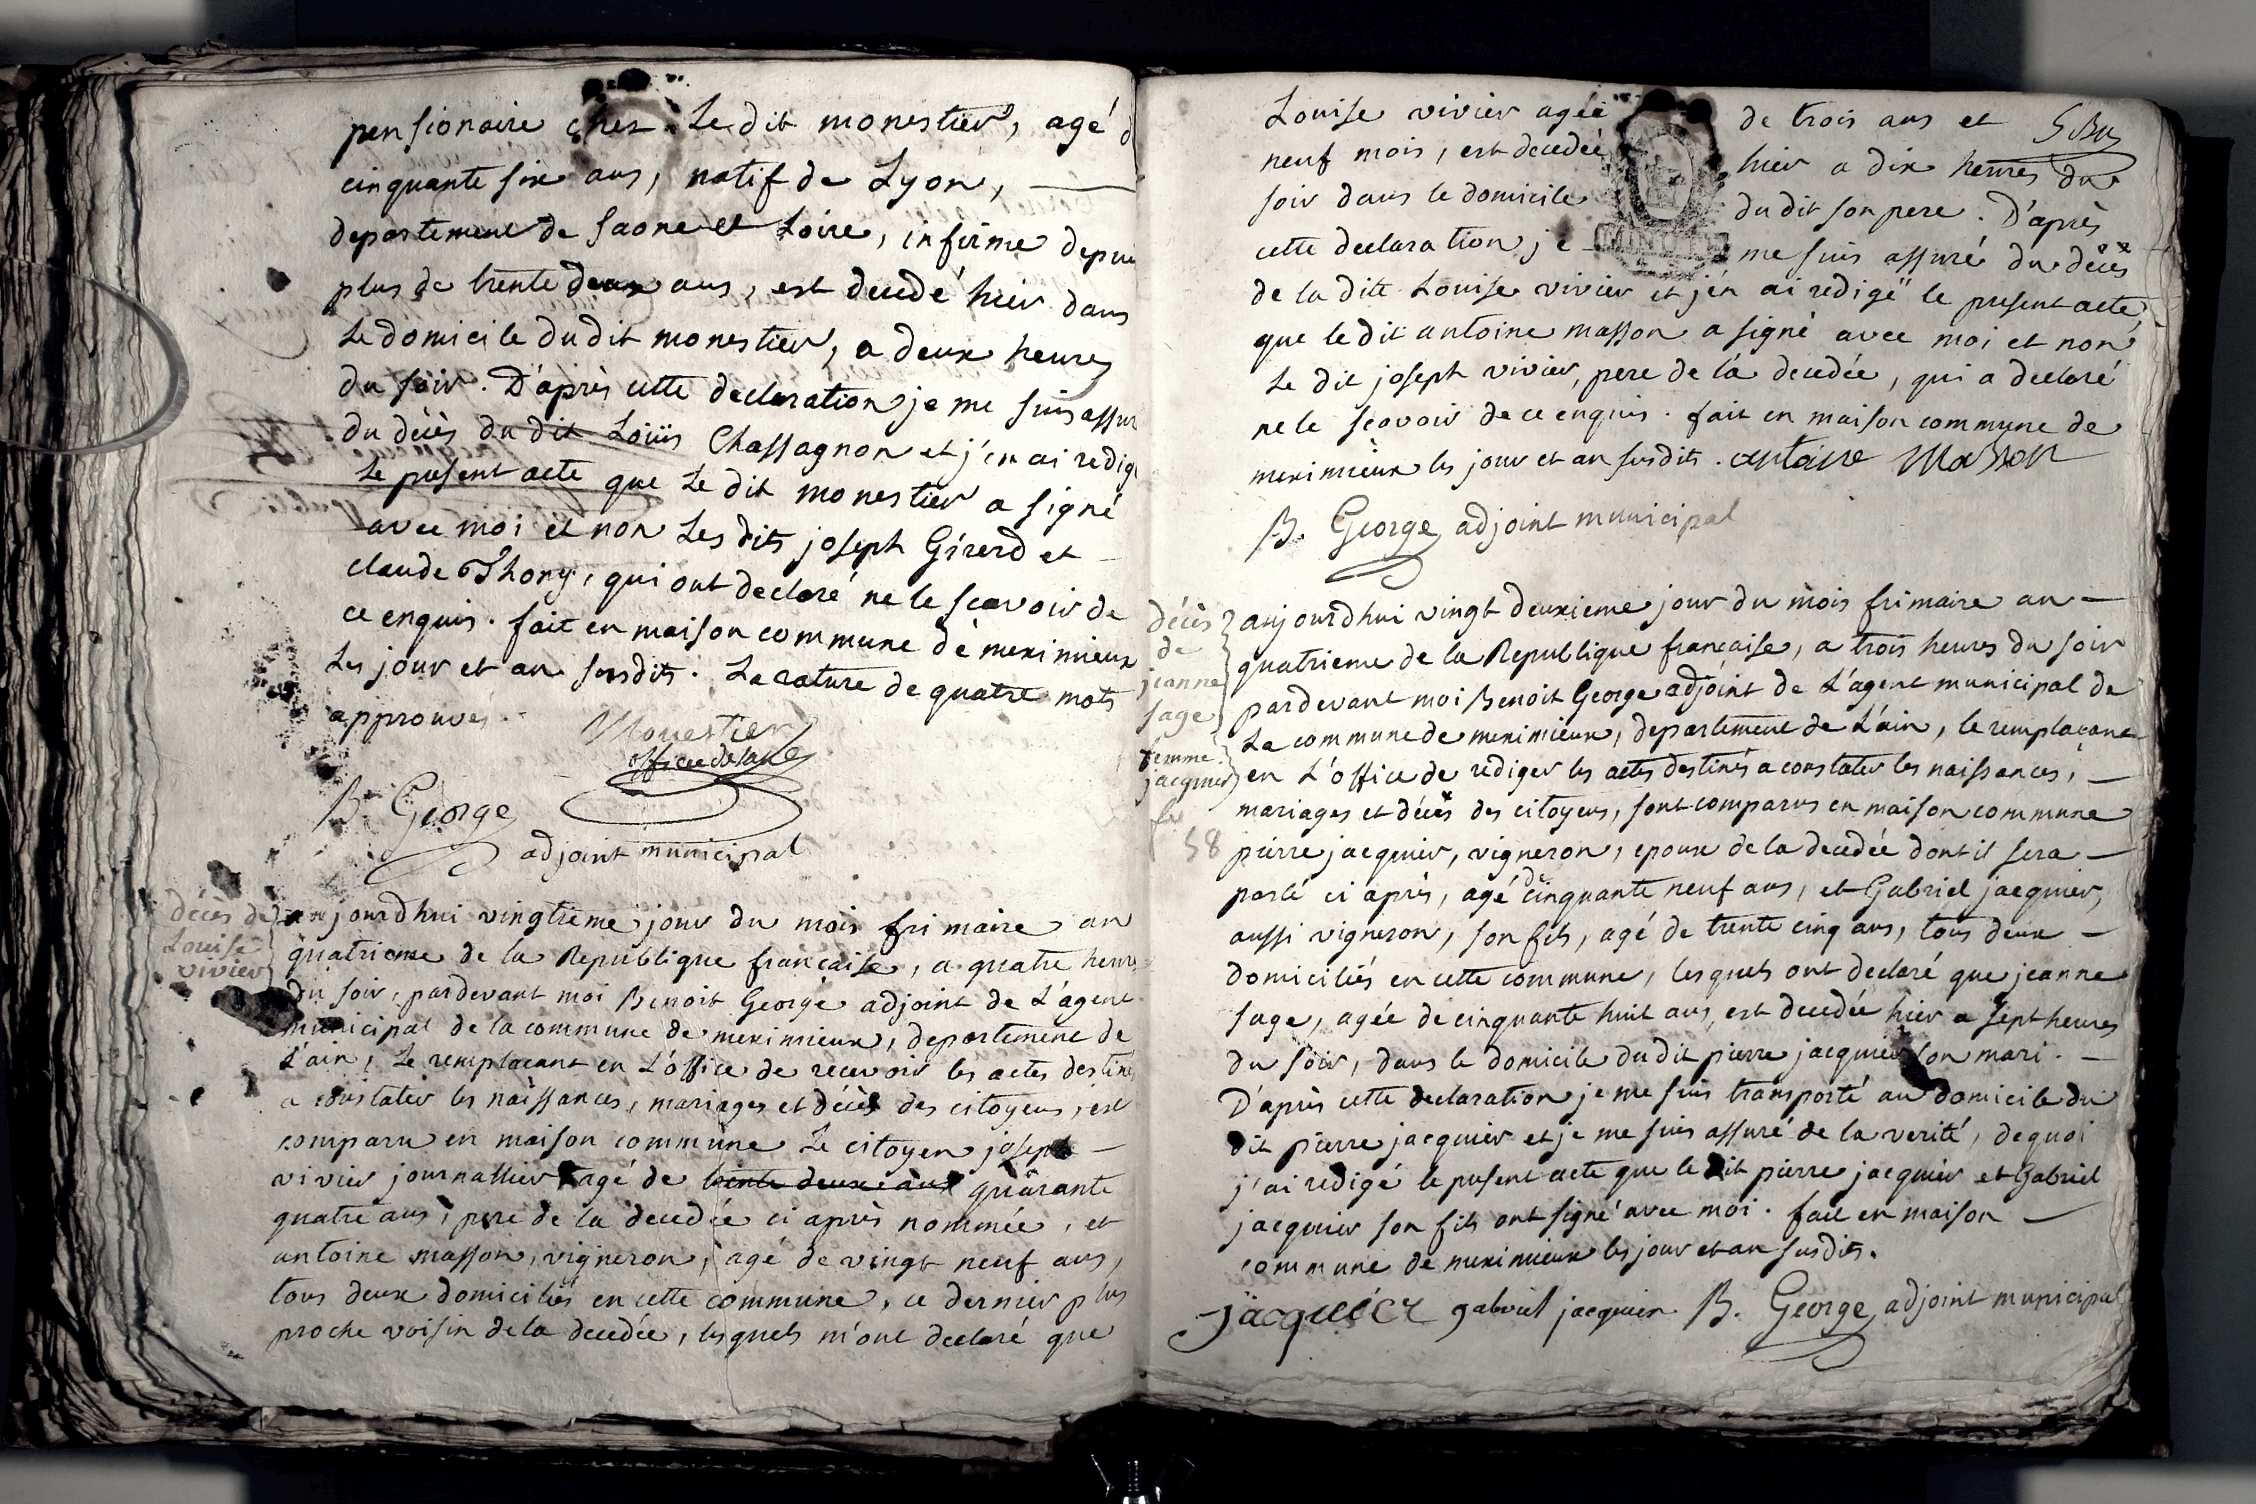 pensionaire chez Le dit monestier, agé d
cinquante six ans, natif de Lyon,
departement de saone et Loire, infirme depui
plus de trente deux ans, est decedé hier dans
Le domicile du dit monestier, a deux heures
du soir. D'après cette declaration je me suis assur
du décès du dit Loüis Chassagnon et j'en ai redig
Le present acte que Le dit monestier a signé
avec moi et non Les dits joseph Girerd et
claude Thony, qui ont declaré ne le scavoir de
ce enquis. fait en maison commune de meximieux
Les jour et an susdits. La rature de quatre mots
approuvés.
Monestier
officier de santé
B. George
adjoint municipal
décès de
Louise
vivier
aujourdhui vingtieme jour du mois frimaire an
quatrieme de la Republique française, a quatre heures
du soir, pardevant moi Benoit George adjoint de L'agent
municipal de la commune de meximieux, departement de
L'ain, Le remplacant en L'office de recevoir les actes destinés
a constater les naissances, mariages et décès des citoyens, est
comparu en maison commune Le citoyen joseph
vivier journallier agé de trente deux ans quarante
quatre ans, pere de la decedée ci après nommée, et
antoine masson, vigneron, agé de vingt neuf ans,
tous deux domiciliés en cette commune, ce dernier plus
proche voisin de la decedée, lesquels m'ont declaré que
Louise vivier agée de trois ans et
neuf mois, est decedée hier a dix heures du
soir dans le domicile du dit son pere. D'après
cette declaration je me suis assuré du décès
de la dite Louise vivier et j'en ai redigé le present acte
que le dit antoine masson a signé avec moi et non
Le dit joseph vivier, pere de la decedée, qui a declaré
ne le scavoir de ce enquis. fait en maison commune de
meximieux les jour et an susdits. antoine Masson
B. George adjoint municipal
décès
de
jeanne
sage
femme
jacquier
58
aujourdhui vingt deuxieme jour du mois frimaire an
quatrieme de la Republique française, a trois heures du soir
pardevant moi Benoit George adjoint de L'agent municipal de
La commune de meximieux, departement de L'ain, le remplacant
en L'office de rediger les actes destinés a constater les naissances,
mariages et décès des citoyens, sont comparus en maison commune
pierre jacquier, vigneron, epoux de la decedée dont il sera
parlé ci après, agé de cinquante neuf ans, et Gabriel jacquier,
aussi vigneron, son fils, agé de trente cinq ans, tous deux
domiciliés en cette commune, lesquels ont declaré que jeanne
sage, agée de cinquante huit ans, est decedée hier a sept heures
du soir, dans le domicile du dit pierre jacquier son mari.
D'après cette declaration je me suis transporté au domicile du
dit pierre jacquier et je me suis assuré de la verité, de quoi
j'ai redigé le present acte que le dit pierre jacquier et Gabriel
jacquier son fils ont signé avec moi. fait en maison
commune de meximieux les jour et an susdits.
jacquier gabriel jacquier B. George adjoint municipal